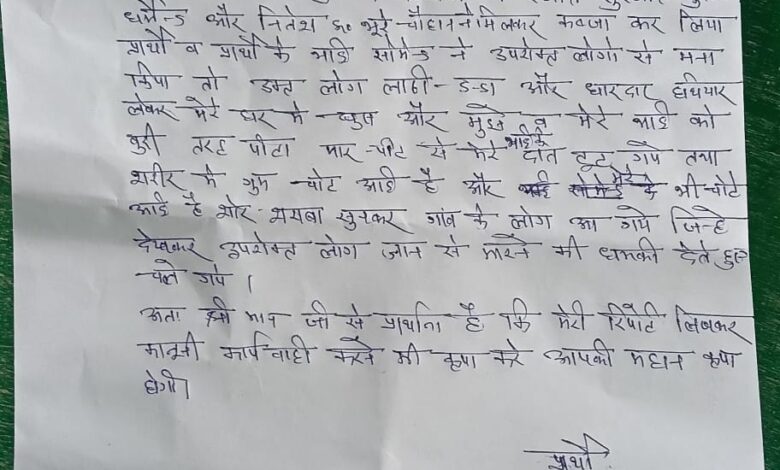 धर्मेन्ड और नितेश S० भूरे चौहान ने मिलकर कवजा कर लिया
प्रार्थी व प्रार्थी के भाई सोमेन्ड ने उपरोक्त लोगो से मना
किया तो उक्त लोग लाठी-डन्डा और धारदार हथियार
लेकर मेरे घर मे घुस और मुझे व मेरे भाई को
बुरी तरह पीटा मार-पीट से मेरे भाई के दाँत टूट गये तथा
शरीर मे गुम चोट आई है और मेरे भी चोटे
आई है शोर शराबा सुनकर गांव के लोग आ गये जिन्हे
देखकर उपरोक्त लोग जान से मारने की धमकी देते हुए
चले गये।
अतः श्री मान जी से प्रार्थना है कि मेरी रिपोर्ट लिखकर
कानूनी कार्यवाही करने की कृपा करे आपकी महान कृपा
होगी।
प्रार्थी